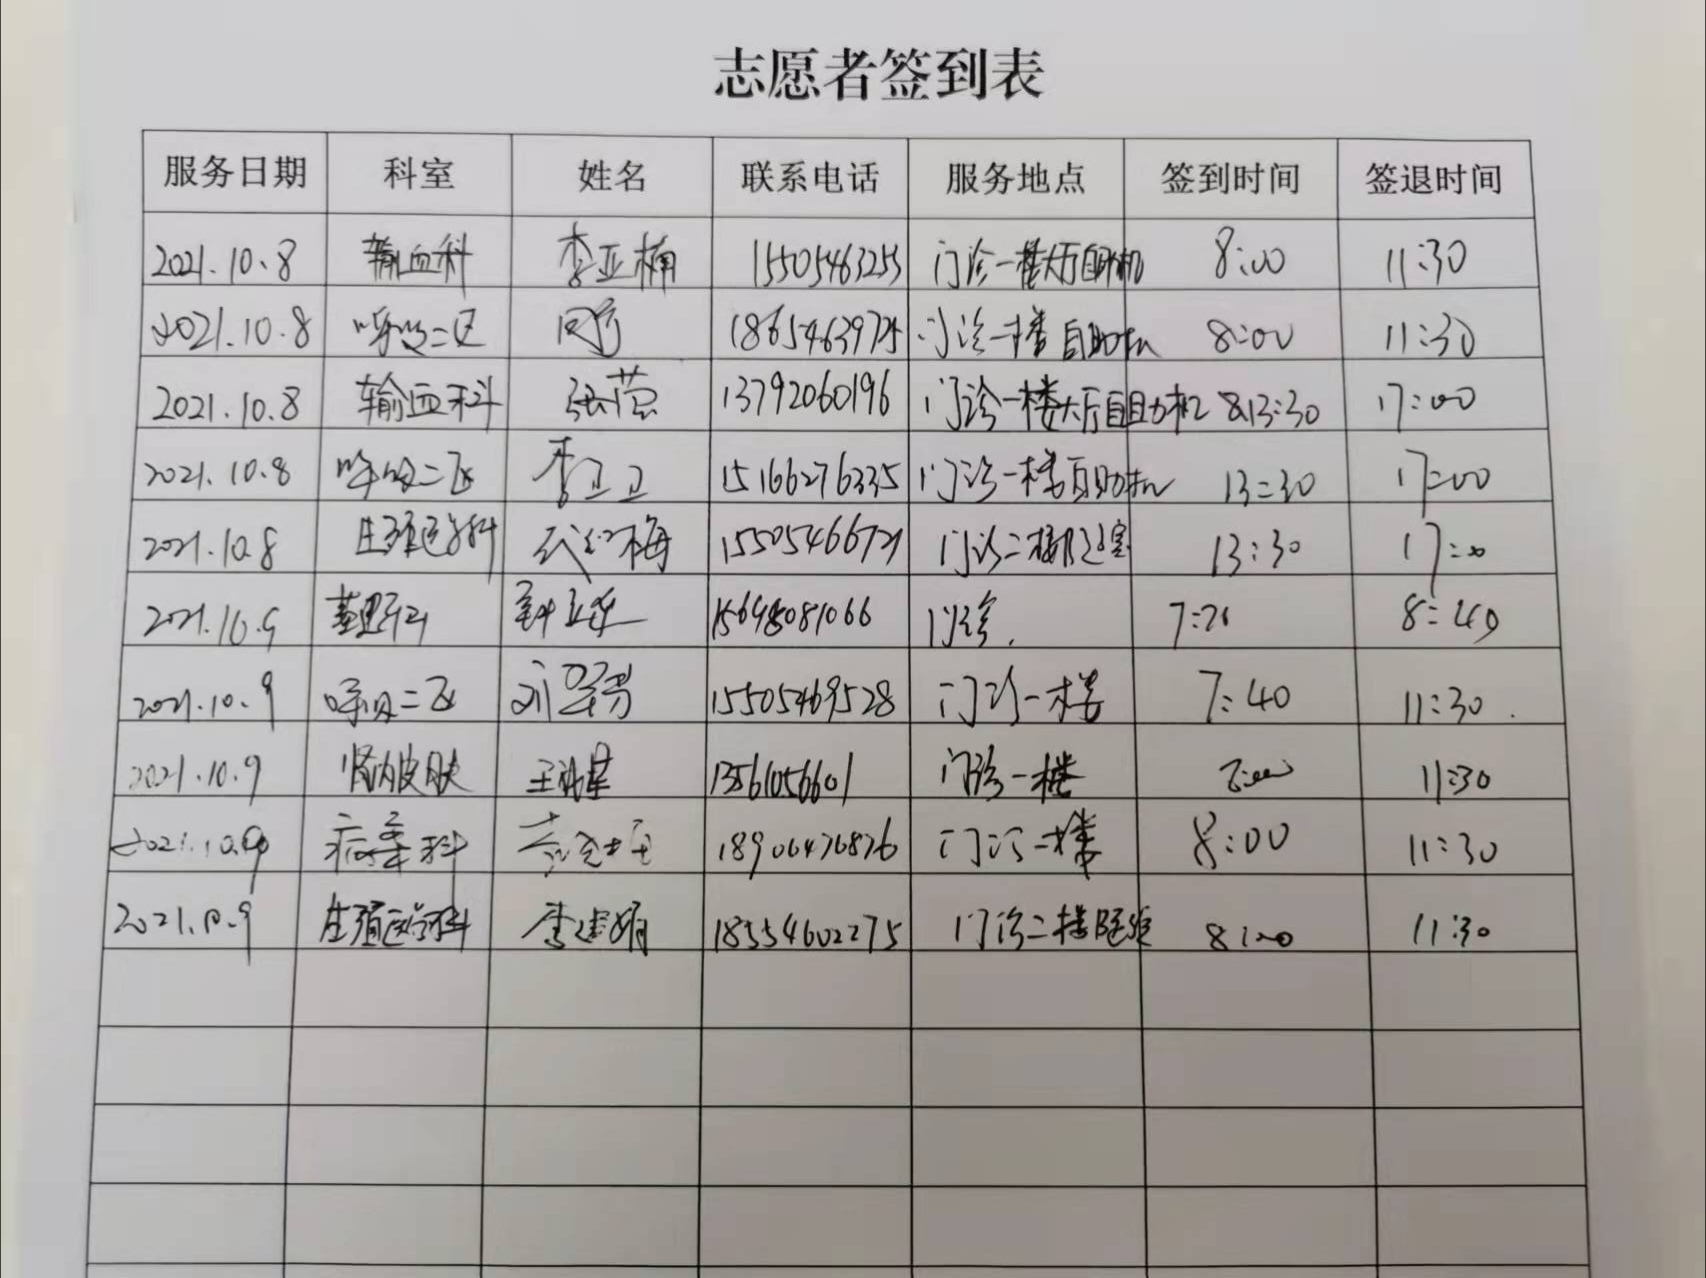 志愿者签到表
服务日期 科室 姓名 联系电话 服务地点 签到时间 签退时间
2021.10.8 输血科 李亚楠 15505463255 门诊一楼大厅自助机 8:00 11:30
2021.10.8 呼吸二区 1865463972 门诊一楼自助机 8:00 11:30
2021.10.8 输血科 张莹 13792060196 门诊一楼大厅自助机 13:30 17:00
2021.10.8 呼吸二区 李卫卫 15166276335 门诊一楼自助机 13:30 17:00
2021.10.8 生殖医学科 梅 15505466721 门诊二楼 13:30 17:00
2021.10.9 门诊. 7:20 8:40
2021.10.9 呼吸二区 刘翠芳 15505469528 门诊一楼 7:40 11:30
2021.10.9 肾内皮肤 13561056601 门诊一楼 11:30
2021.10.9 病案科 18906476876 门诊一楼 8:00 11:30
2021.10.9 生殖医学科 李建娟 18554602275 门诊二楼 8:00 11:30